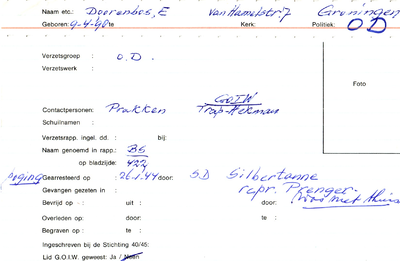 Naam etc.: Doorenbos, E van Hamelstr 7 Groningen
Geboren: 9-4-98 te Kerk: Politiek: OD
Verzetsgroep : O.D.
Verzetswerk :
Foto
GOIW
Contactpersonen: Prakken Trap-Hekman
Schuilnaam :
Verzetsrapp. ingel. dd. : bij:
Naam genoemd in rapp.: BS
op bladzijde: 422
poging Gearresteerd op : 26.1.44 door: SD Silbertanne
Gevangen gezeten in : repr. Prenger
Bevrijd op - : uit : door: was niet thuis
Overleden op : door: te :
Begraven op : te :
Ingeschreven bij de Stichting 40/45:
Lid G.O.I.W. geweest: Ja / Neen